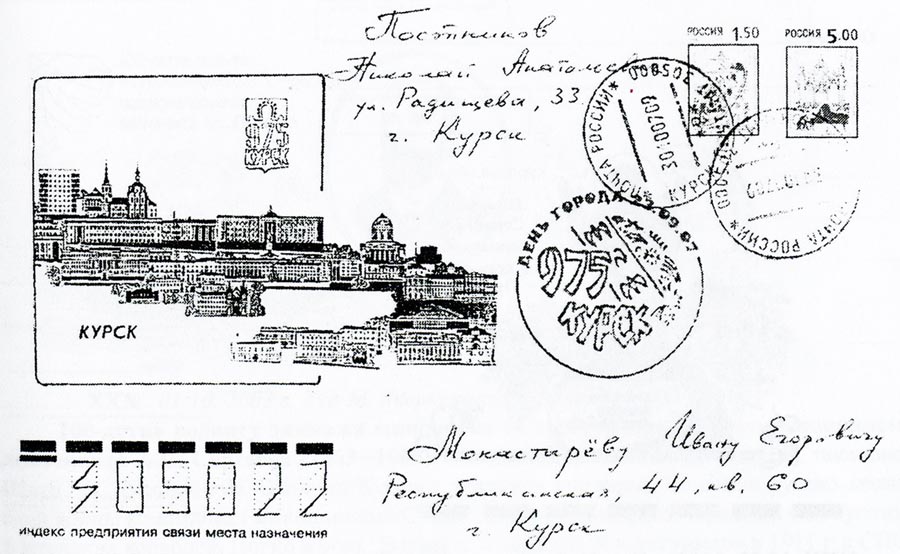 Постников
Николай
ул. Радищева, 33.
г. Курск
РОССИЯ 1.50
РОССИЯ 5.00
975
КУРСК
КУРСК
ПОЧТА РОССИИ
КУРСК
305000
ПОЧТА РОССИИ
ДЕНЬ ГОРОДА
975
КУРСК
Монастырёву Ивану Егоровичу
Республиканская, 44, кв. 60
г. Курск
305022
индекс предприятия связи места назначения